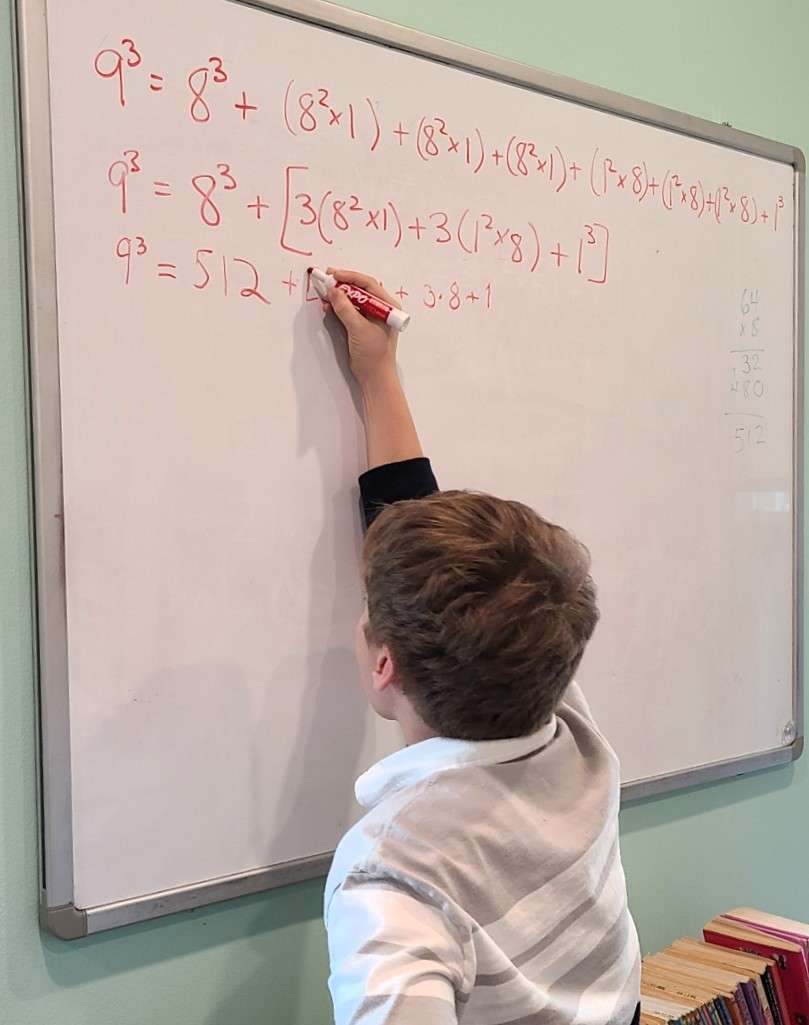 9³ = 8³ + (8²×1) + (8²×1) + (8²×1) + (1²×8) + (1²×8) + (1²×8) + 1³
9³ = 8³ + [3(8²×1) + 3(1²×8) + 1³]
9³ = 512 + [ + 3·8+1
64
×8
32
480
512
EXPO